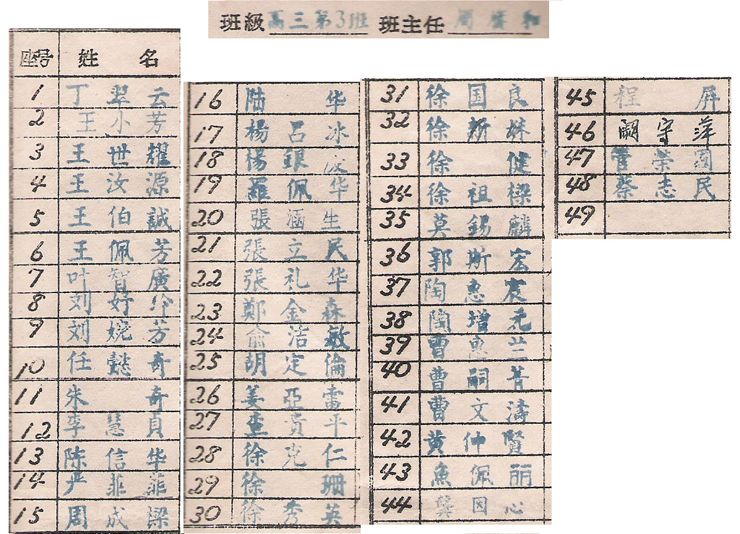 班級 高三第3班 班主任 周賡和
座号 姓 名
1 丁翠云
2 王小芳
3 王世耀
4 王汝源
5 王伯誠
6 王佩芳
7 叶智廣
8 刘好
9 刘婉芳
10 任懿奇
11 朱奇
12 李慧貞
13 陈信华
14 严菲菲
15 周成樑
16 陆华
17 楊呂冰
18 楊銀波
19 羅佩华
20 張涵生
21 張立民
22 張礼华
23 鄭金森
24 俞洁敏
25 胡定倫
26 姜亞雷
27 查貴平
28 徐克仁
29 徐珊
30 徐秀英
31 徐国良
32 徐斯姝
33 徐健
34 徐祖樑
35 莫錫麟
36 郭斯宏
37 陶惠宸
38 陶增元
39 曹惠兰
40 曹嗣菁
41 曹文濤
42 黄仲賢
43 魚佩丽
44 龔因心
45 程屏
46 闕守萍
47 管荣国
48 蔡志民
49